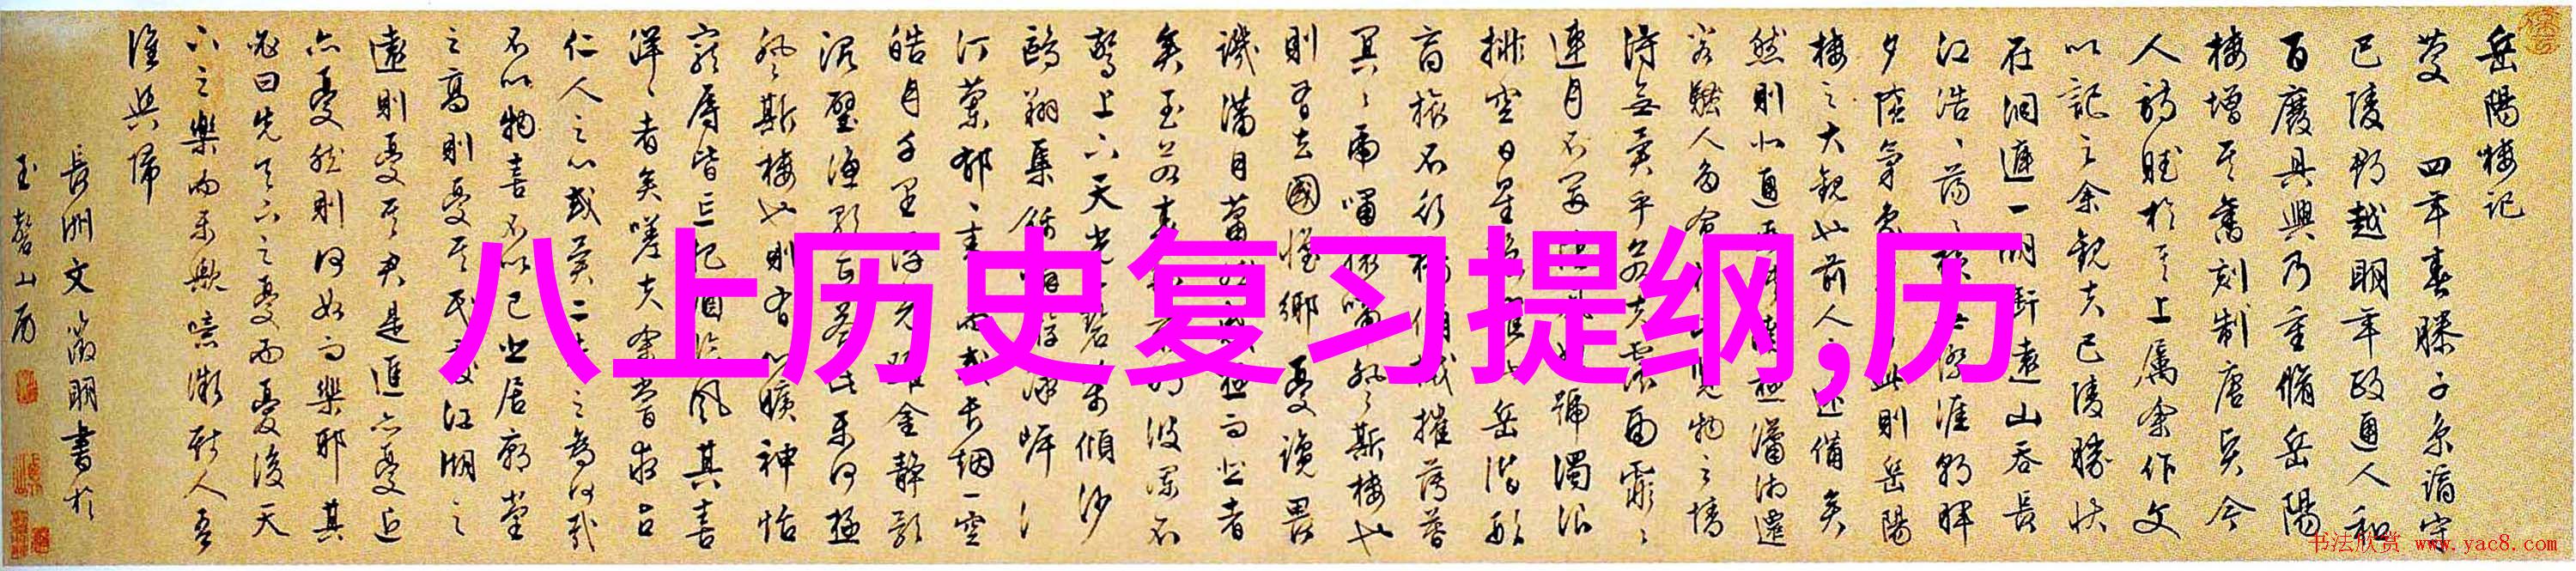 岳陽樓記
慶 四年春滕子京謫守
巴陵郡越明年政通人和
百廢具興乃重脩岳陽
樓增其舊刻制唐賢今
人詩賦於其上屬余作文
以記之余觀夫巴陵勝狀
在洞庭一湖銜遠山吞長
江浩、蕩、橫無際涯朝暉
夕陰氣象 此則岳陽
樓之大觀也前人之述備矣
然則北通巫峽南極瀟湘遷
客騷人多會於此覽物之情
得無異乎若夫霪雨霏、
連月不開陰風怒號濁浪
排空日星隱曜山岳潛形
商旅不行檣傾楫摧薄暮
冥、虎嘯猿啼登斯樓也
則有去國懷鄉憂讒畏
譏滿目蕭然感極而悲者
矣至若春和景明波瀾不
驚上下天光一碧萬頃沙
鷗翔集錦鱗游泳岸
汀蘭郁、青、而或長烟一空
皓月千里浮光躍金靜影
沉璧漁歌互答此樂何極
登斯樓也則有心曠神怡
寵辱皆忘把酒臨風其喜
洋、者矣嗟夫余嘗求古
仁人之心或異二者之為何哉
不以物喜不以己悲居廟堂
之高則憂其民處江湖之
遠則憂其君是進亦憂退
亦憂然則何如而樂耶其
必曰先天下之憂而憂後天
下之樂而樂歟噫微斯人吾
誰與歸
長洲文徵明書於
玉磬山房
八上历史复习提纲,历
书法欣赏 www.yac8.com